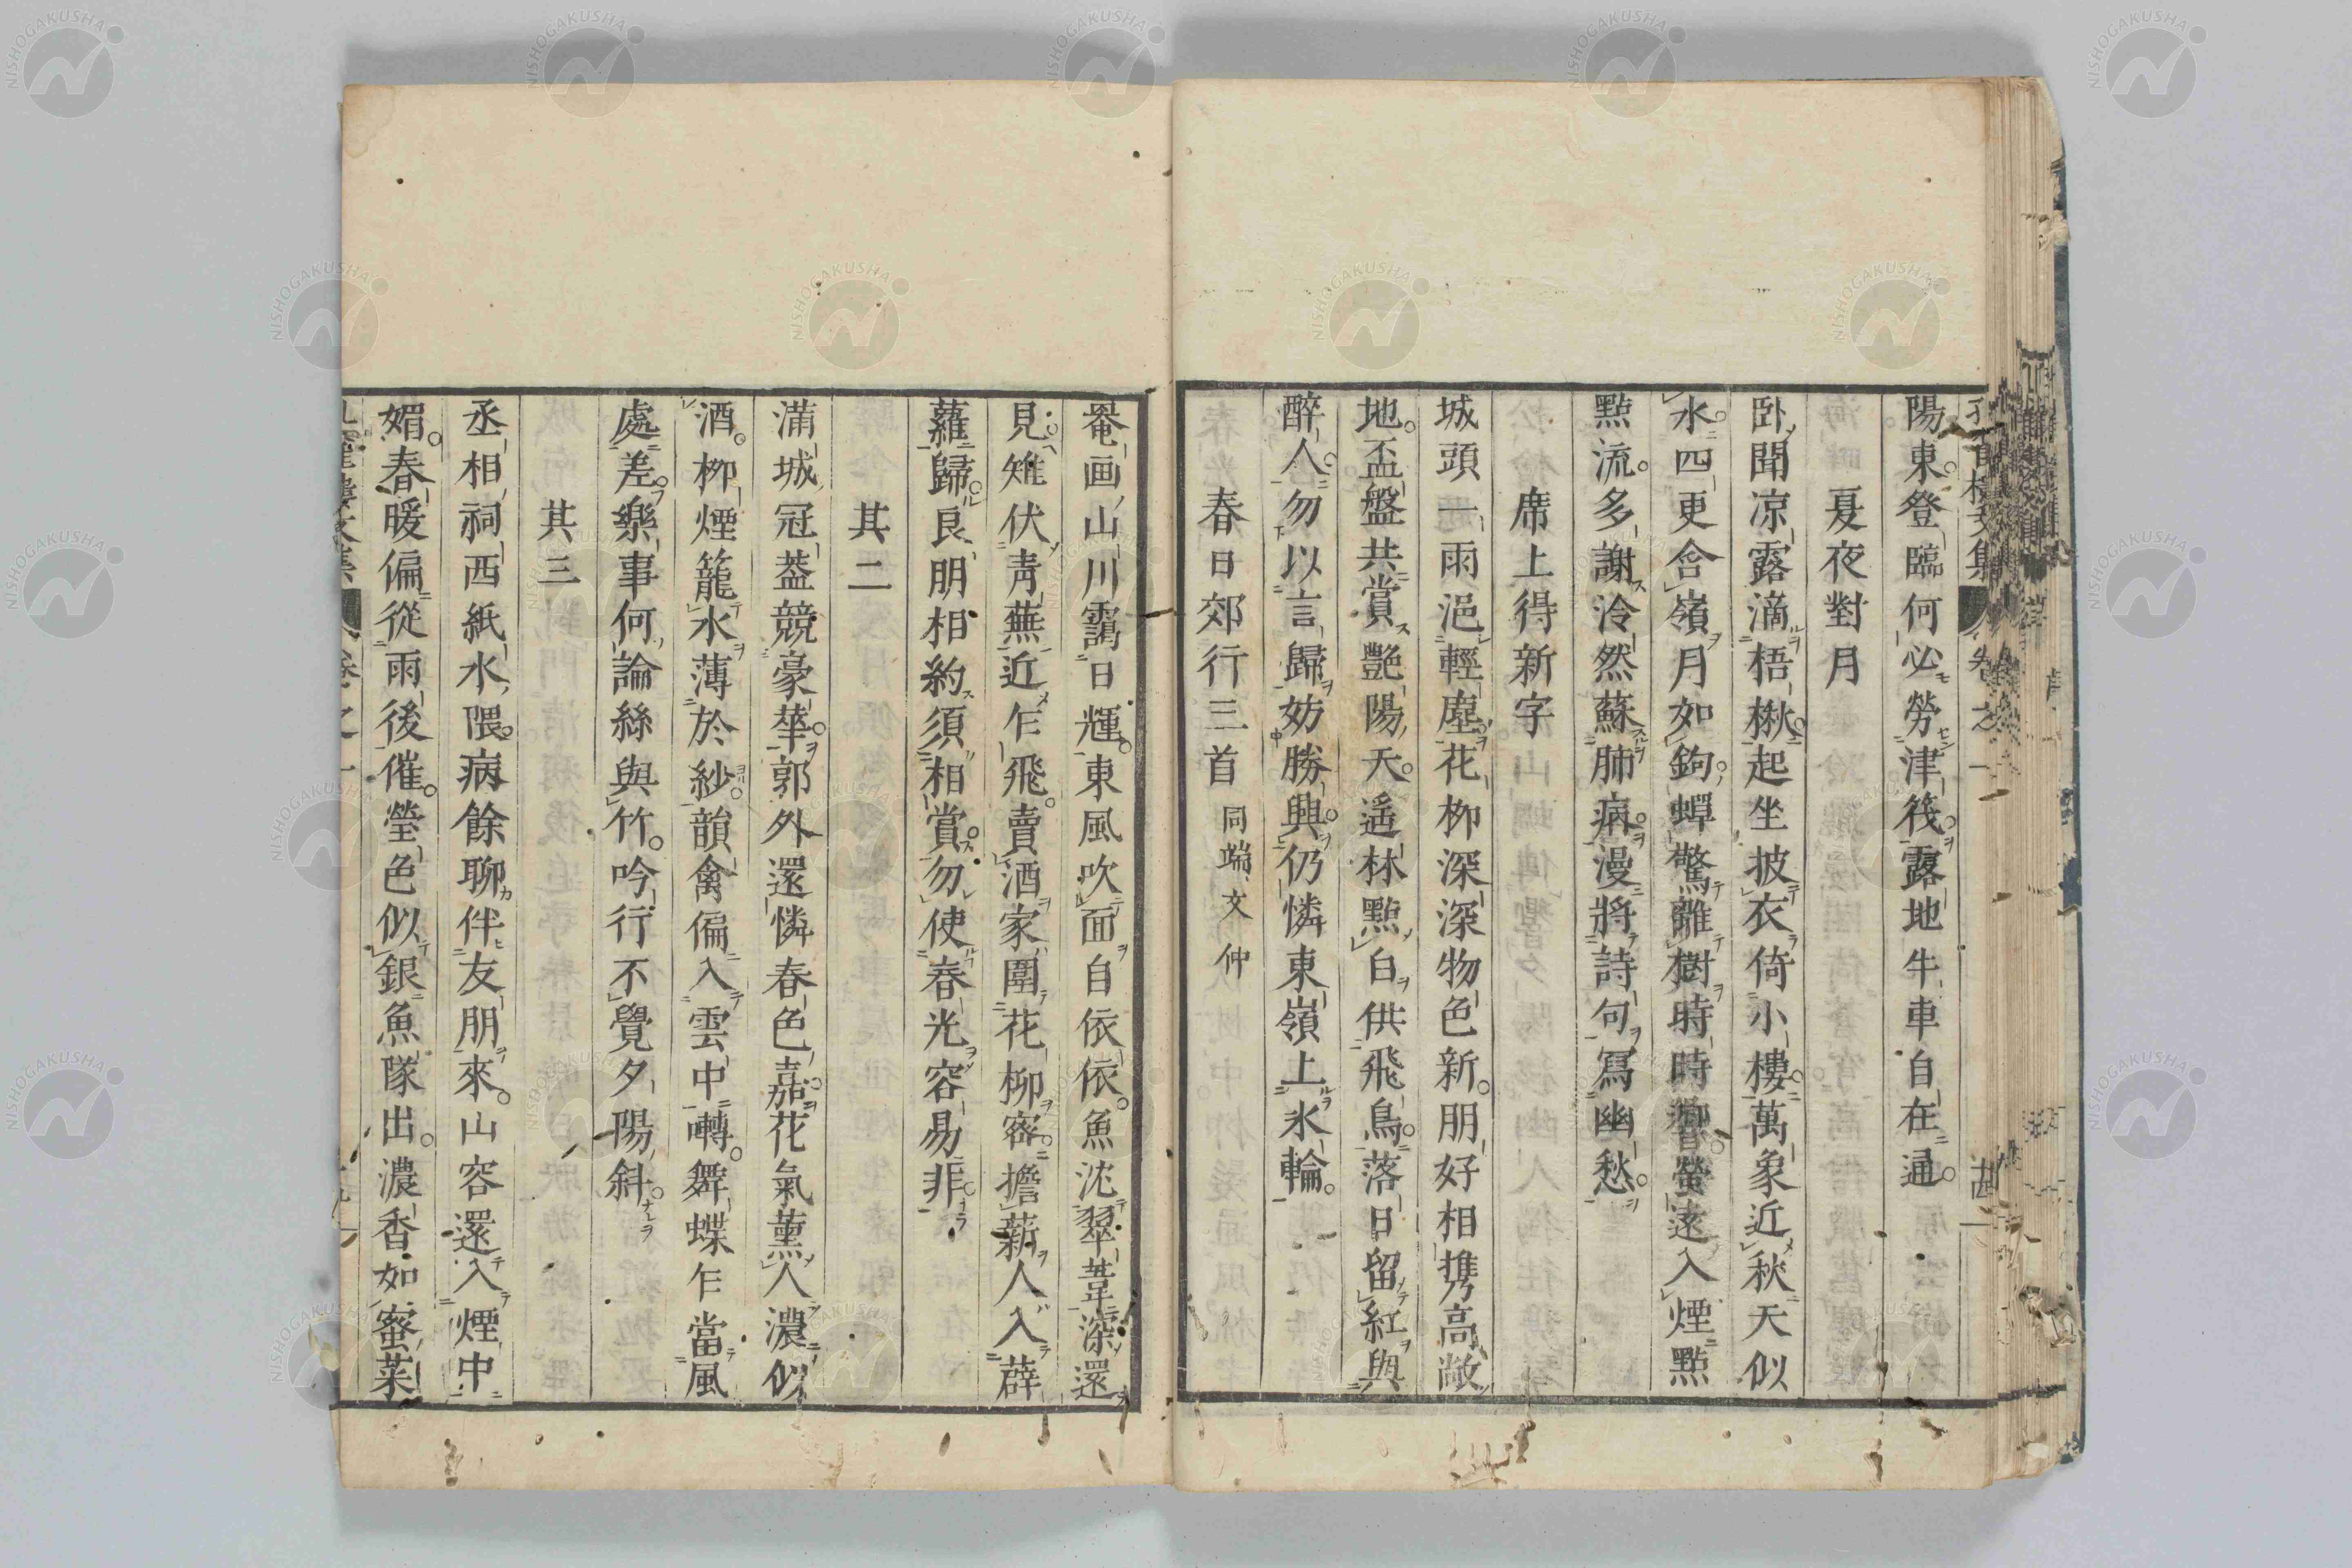 陽東登臨何必勞津筏露地牛車自在通
夏夜對月
臥聞凉露滴梧楸起坐披衣倚小樓萬象近秋天似
水四更含嶺月如鉤蟬驚離樹時時響螢遠入煙點
點流多謝泠然蘇肺病漫將詩句寫幽愁
席上得新字
城頭一雨浥輕塵花柳深深物色新朋好相携高敞
地盃盤共賞艷陽天遥林點白供飛鳥落日留紅與
醉人勿以言歸妨勝興仍憐東嶺上氷輪
春日郊行三首 同端文仲
罨画山川靄日輝東風吹面自依依魚沈翠葦深還
見雉伏靑蕪近乍飛賣酒家圍花柳密擔薪人入薜
蘿歸良朋相約須相賞勿使春光容易非
其二
滿城冠蓋競豪華郭外還憐春色嘉花氣薰人濃似
酒柳煙籠水薄於紗韻禽偏入雲中囀舞蝶乍當風
處差樂事何論絲與竹吟行不覺夕陽斜
其三
丞相祠西紙水隈病餘聊伴友朋來山容還入煙中
媚春暖偏從雨後催瑩色似銀魚隊出濃香如蜜菜
卷之一
NISHOGAKUSHA